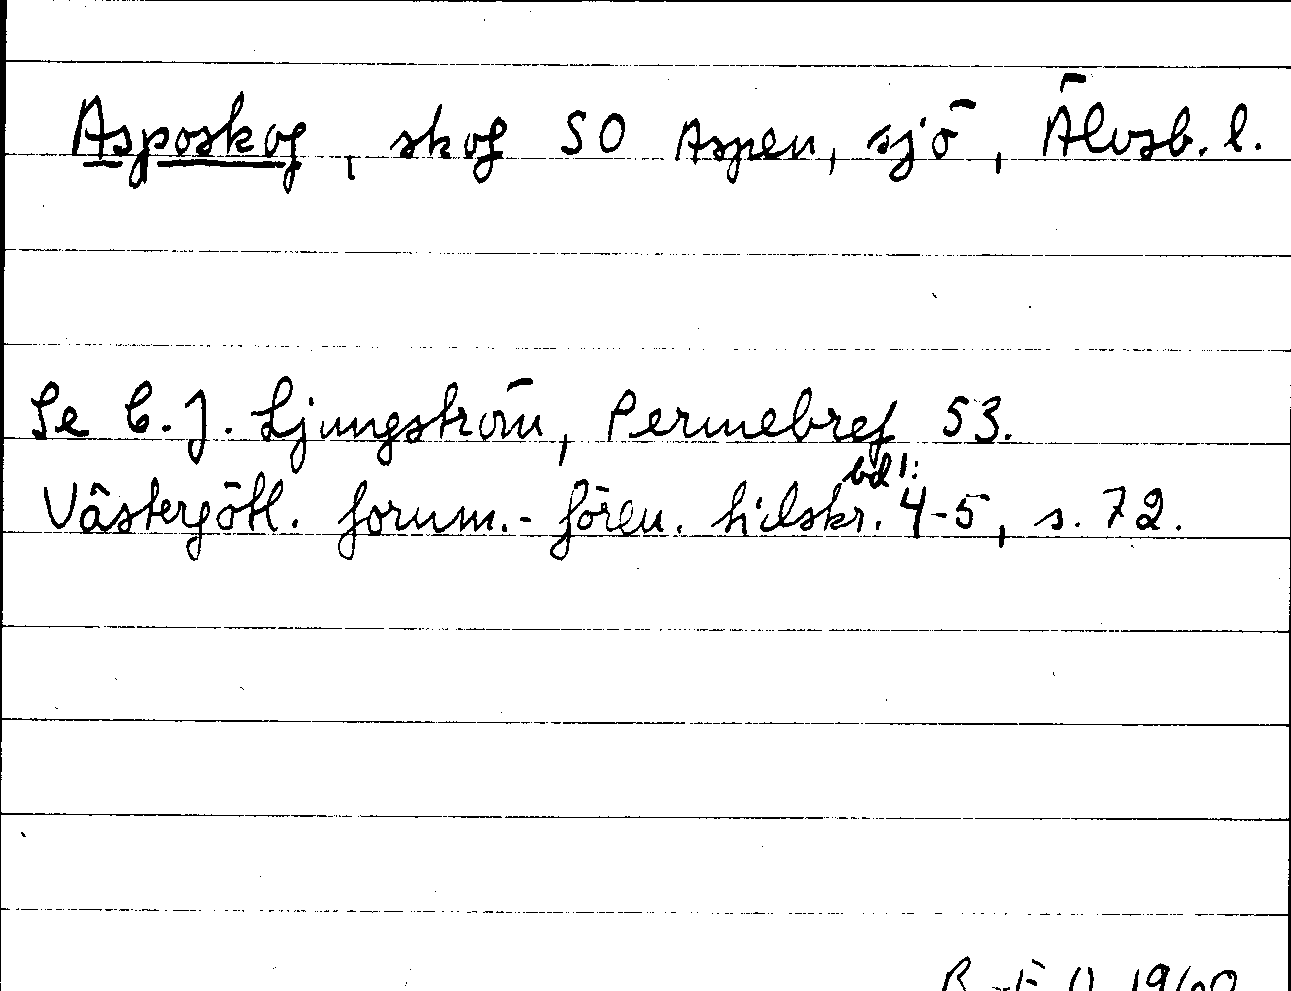 Asposkog, skog SO Aspen, sjö, Älvsb. l.
Se C. J. Ljungström, Permebref 53.
Västergötl. fornm.-fören. tidskr. bd 1: 4-5, s. 72.